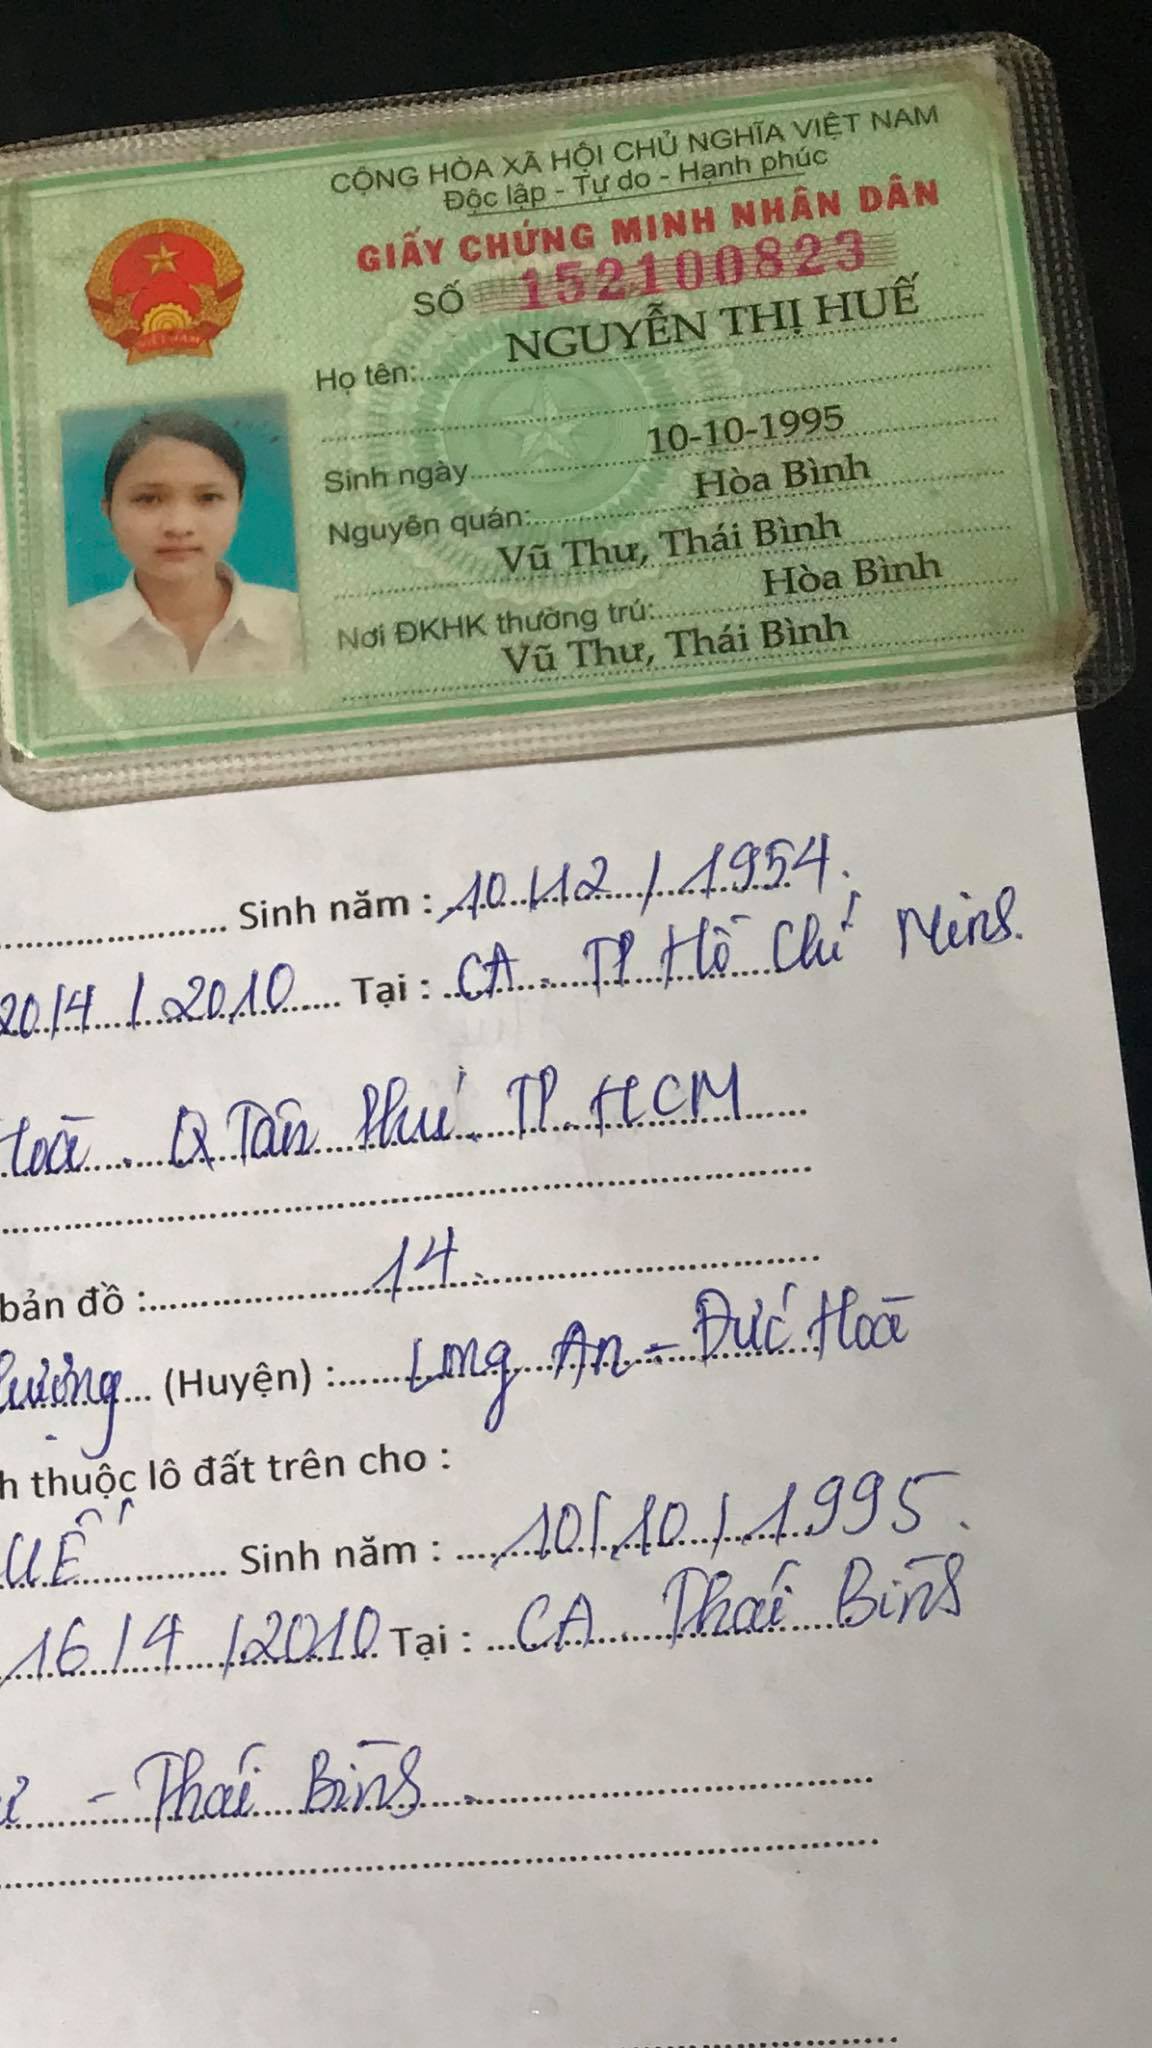 CỘNG HÒA XÃ HỘI CHỦ NGHĨA VIỆT NAM
Độc lập - Tự do - Hạnh phúc
GIẤY CHỨNG MINH NHÂN DÂN
SỐ 152100823
Họ tên: NGUYỄN THỊ HUẾ
Sinh ngày 10-10-1995
Nguyên quán: Hòa Bình
Vũ Thư, Thái Bình
Nơi ĐKHK thường trú: Hòa Bình
Vũ Thư, Thái Bình
VIỆT NAM
Sinh năm : 10/12/1954.
20/4/2010 Tại : CA. TP Hồ Chí Minh.
Hoà. Q Tân Phú. TP. HCM
bản đồ : 14.
(Huyện) : Long An - Đức Hoà
h thuộc lô đất trên cho :
UẾ Sinh năm : 10/10/1995.
16/4/2010 Tại : CA. Thái Bình
- Thái Bình.